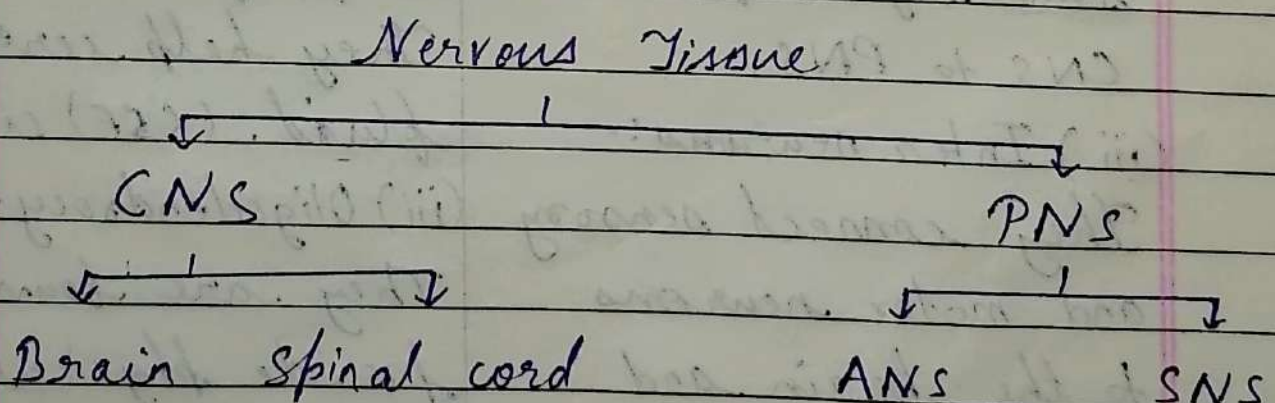 Nervous Tissue
C.N.S. P.N.S
Brain Spinal cord A.N.S SNS